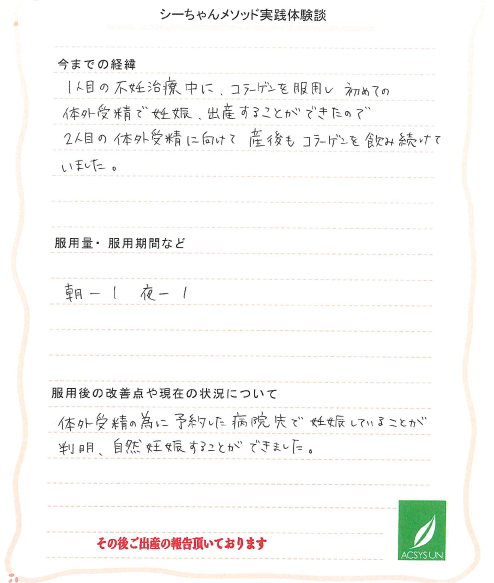 シーちゃんメソッド実践体験談
今までの経緯
1人目の不妊治療中に、コラーゲンを服用し 初めての
体外受精で妊娠、出産することができたので
2人目の体外受精に向けて 産後もコラーゲンを飲み続けて
いました。
服用量・服用期間など
朝ー1 夜ー1
服用後の改善点や現在の状況について
体外受精の為に予約した病院先で妊娠していることが
判明、自然妊娠することができました。
その後ご出産の報告頂いております
ACSYSUN